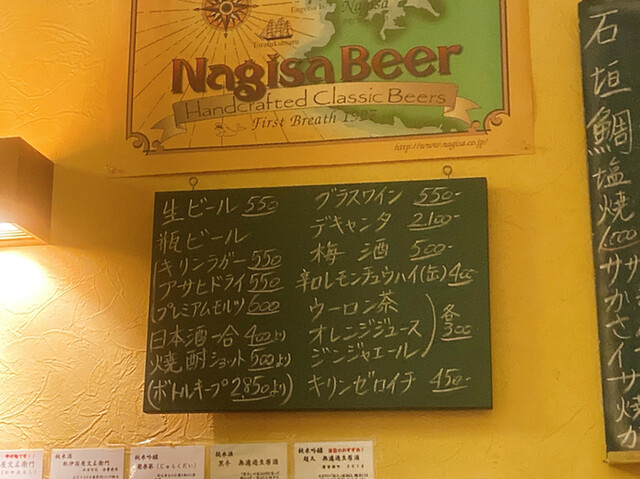 Nagisa
Nagisa Beer
Handcrafted Classic Beers
First Breath 1997
http://www.nagisa.co.jp/
生ビール 550
瓶ビール
(キリンラガー 550
アサヒドライ 550
(プレミアムモルツ 600
日本酒一合 400より
焼酎ショット 500より
(ボトルキープ 2850より)
グラスワイン 550-
デキャンタ 2100-
梅酒 500-
辛口レモンチュウハイ(缶) 400
ウーロン茶
オレンジジュース
ジンジャエール
各300
キリンゼロイチ 450-
石垣鯛塩焼
サザ
純米酒
純米吟醸
純米酒
純米吟醸
無濾過生原酒
無濾過生原酒